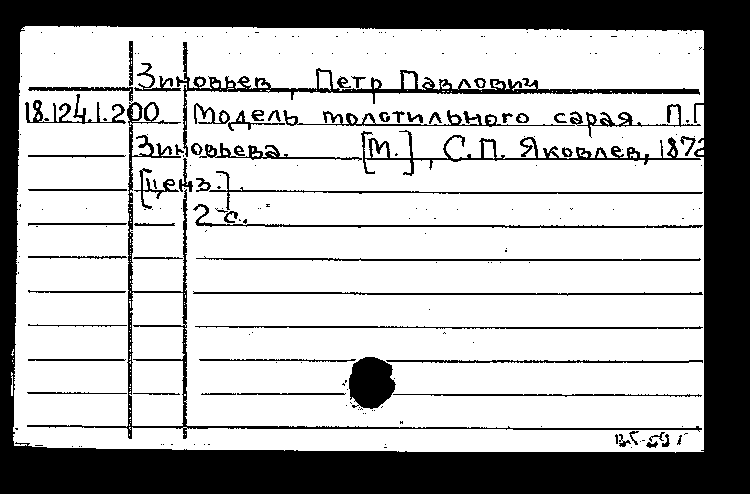 Зиновьев, Петр Павлович
18.124.1.200. Модель молотильного сарая. П.П
Зиновьева. [М.], С.П. Яковлев, 1872
[ценз.].
2 с.